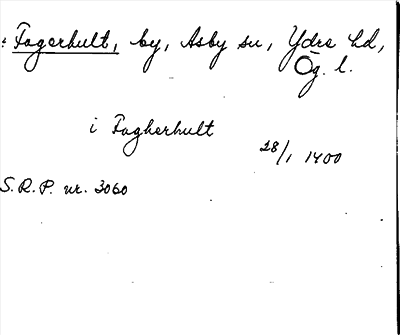 : Fagerhult, by, Asby sn, Ydre hd,
Ög. l.
i Fagherhult
28/1 1400
S.R.P. nr. 3060